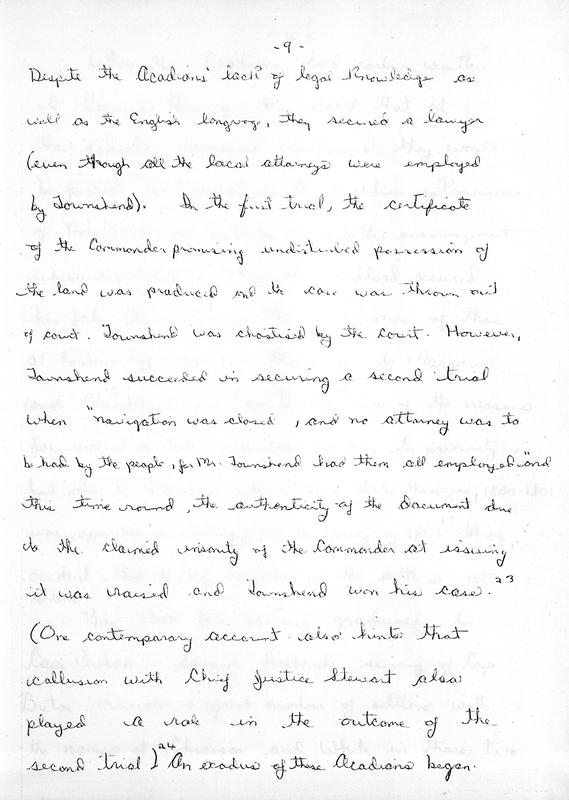 -9-
Despite the Acadians' lack of legal knowledge as
well as the English language, they secured a lawyer
(even though all the local attorneys were employed
by Townshend). In the first trial, the certificate
of the Commander promising undisturbed possession of
the land was produced and the case was thrown out
of court. Townshend was chastised by the court. However,
Townshend succeeded in securing a second trial
when "navigation was closed, and no attorney was to
be had by the people, for Mr. Townshend had them all employed" and
this time round, the authenticity of the document due
to the claimed insanity of the Commander at issuing
it was raised and Townshend won his case. 23
(One contemporary account also hints that
collusion with Chief Justice Stewart also
played a role in the outcome of the
second trial) 24 An exodus of these Acadians began.